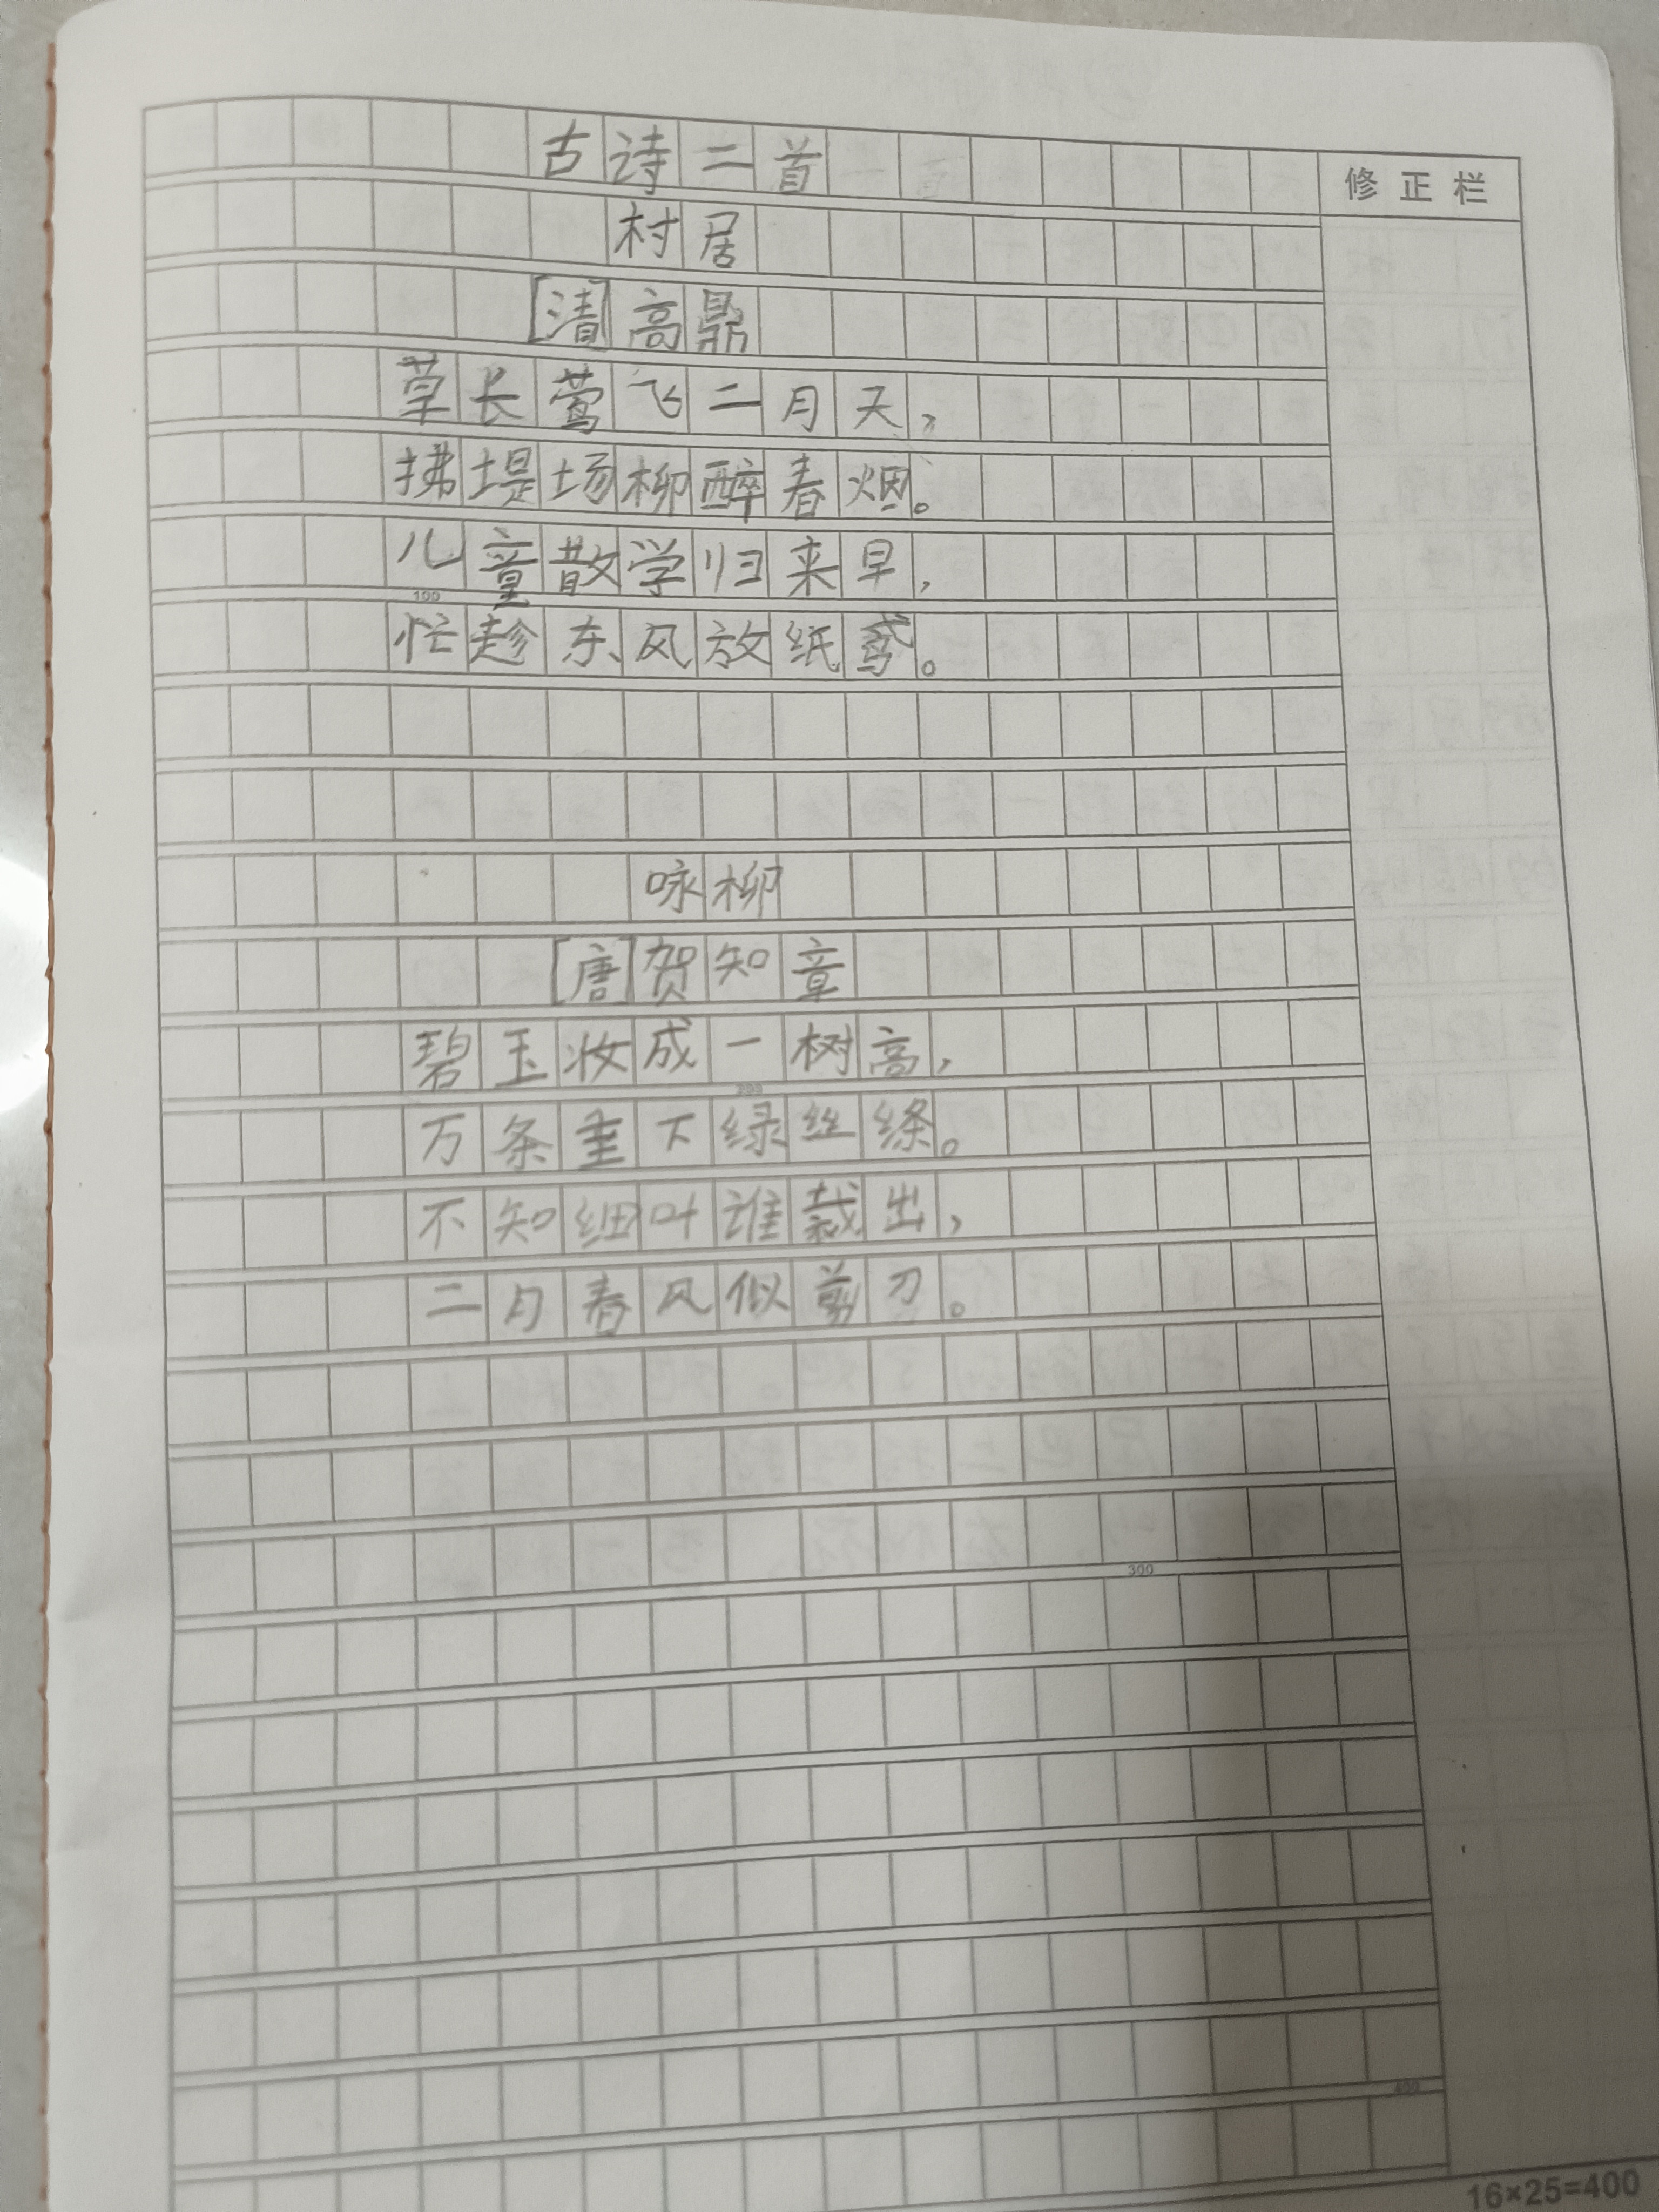 古诗二首
修正栏
村居
[清]高鼎
草长莺飞二月天,
拂堤场柳醉春烟。
儿童散学归来早,
100
忙趁东风放纸鸢。
咏柳
[唐]贺知章
碧玉妆成一树高,
200
万条垂下绿丝绦。
不知细叶谁裁出,
二月春风似剪刀。
300
400
16×25=400